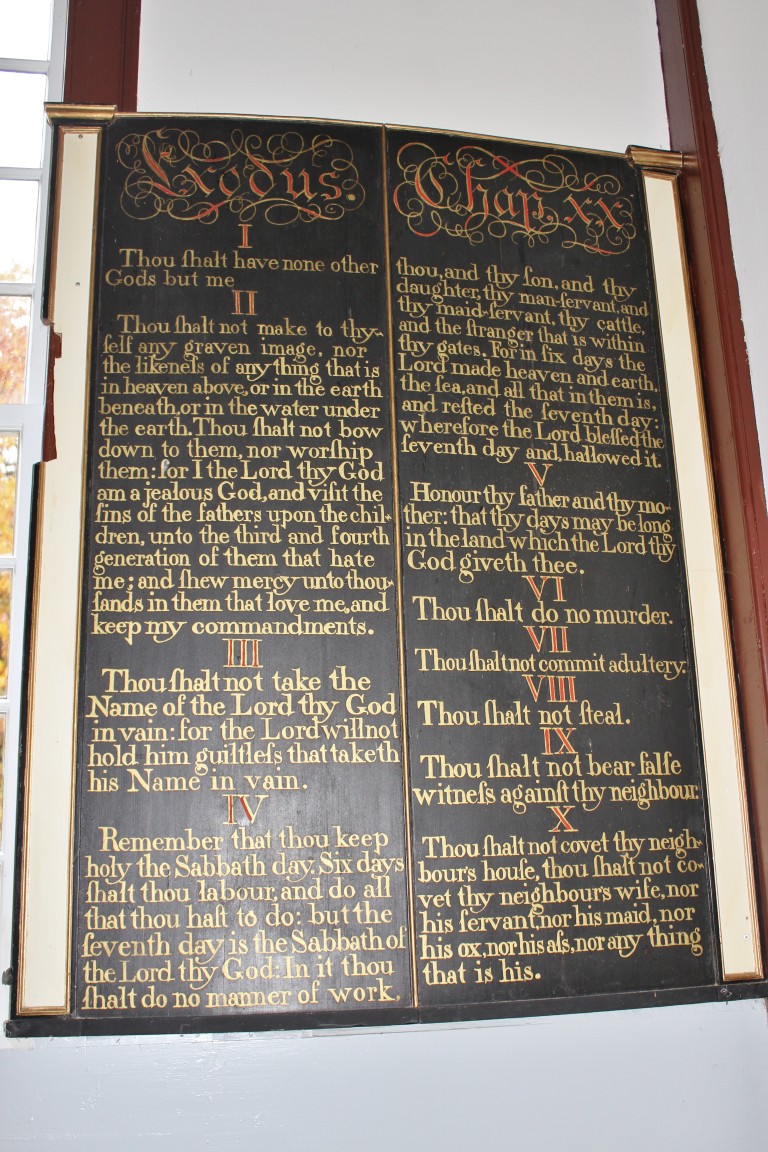 Exodus.
I
Thou ſhalt have none other
Gods but me
II
Thou ſhalt not make to thy-
ſelf any graven image, nor
the likeneſs of any thing that is
in heaven above, or in the earth
beneath, or in the water under
the earth. Thou ſhalt not bow
down to them, nor worſhip
them: for I the Lord thy God
am a jealous God, and viſit the
ſins of the fathers upon the chil-
dren, unto the third and fourth
generation of them that hate
me; and ſhew mercy unto thou-
ſands in them that love me, and
keep my commandments.
III
Thou ſhalt not take the
Name of the Lord thy God
in vain: for the Lord will not
hold him guiltleſs that taketh
his Name in vain.
IV
Remember that thou keep
holy the Sabbath day. Six days
ſhalt thou labour, and do all
that thou haſt to do: but the
ſeventh day is the Sabbath of
the Lord thy God: In it thou
ſhalt do no manner of work,
Chap. XX
thou, and thy ſon, and thy
daughter, thy man-ſervant, and
thy maid-ſervant, thy cattle,
and the ſtranger that is within
thy gates. For in ſix days the
Lord made heaven and earth,
the ſea, and all that in them is,
and reſted the ſeventh day:
wherefore the Lord bleſſed the
ſeventh day and, hallowed it.
V
Honour thy father and thy mo-
ther: that thy days may be long
in the land which the Lord thy
God giveth thee.
VI
Thou ſhalt do no murder.
VII
Thou ſhalt not commit adultery.
VIII
Thou ſhalt not ſteal.
IX
Thou ſhalt not bear falſe
witneſs againſt thy neighbour.
X
Thou ſhalt not covet thy neigh-
bour's houſe, thou ſhalt not co-
vet thy neighbour's wife, nor
his ſervant, nor his maid, nor
his ox, nor his aſs, nor any thing
that is his.